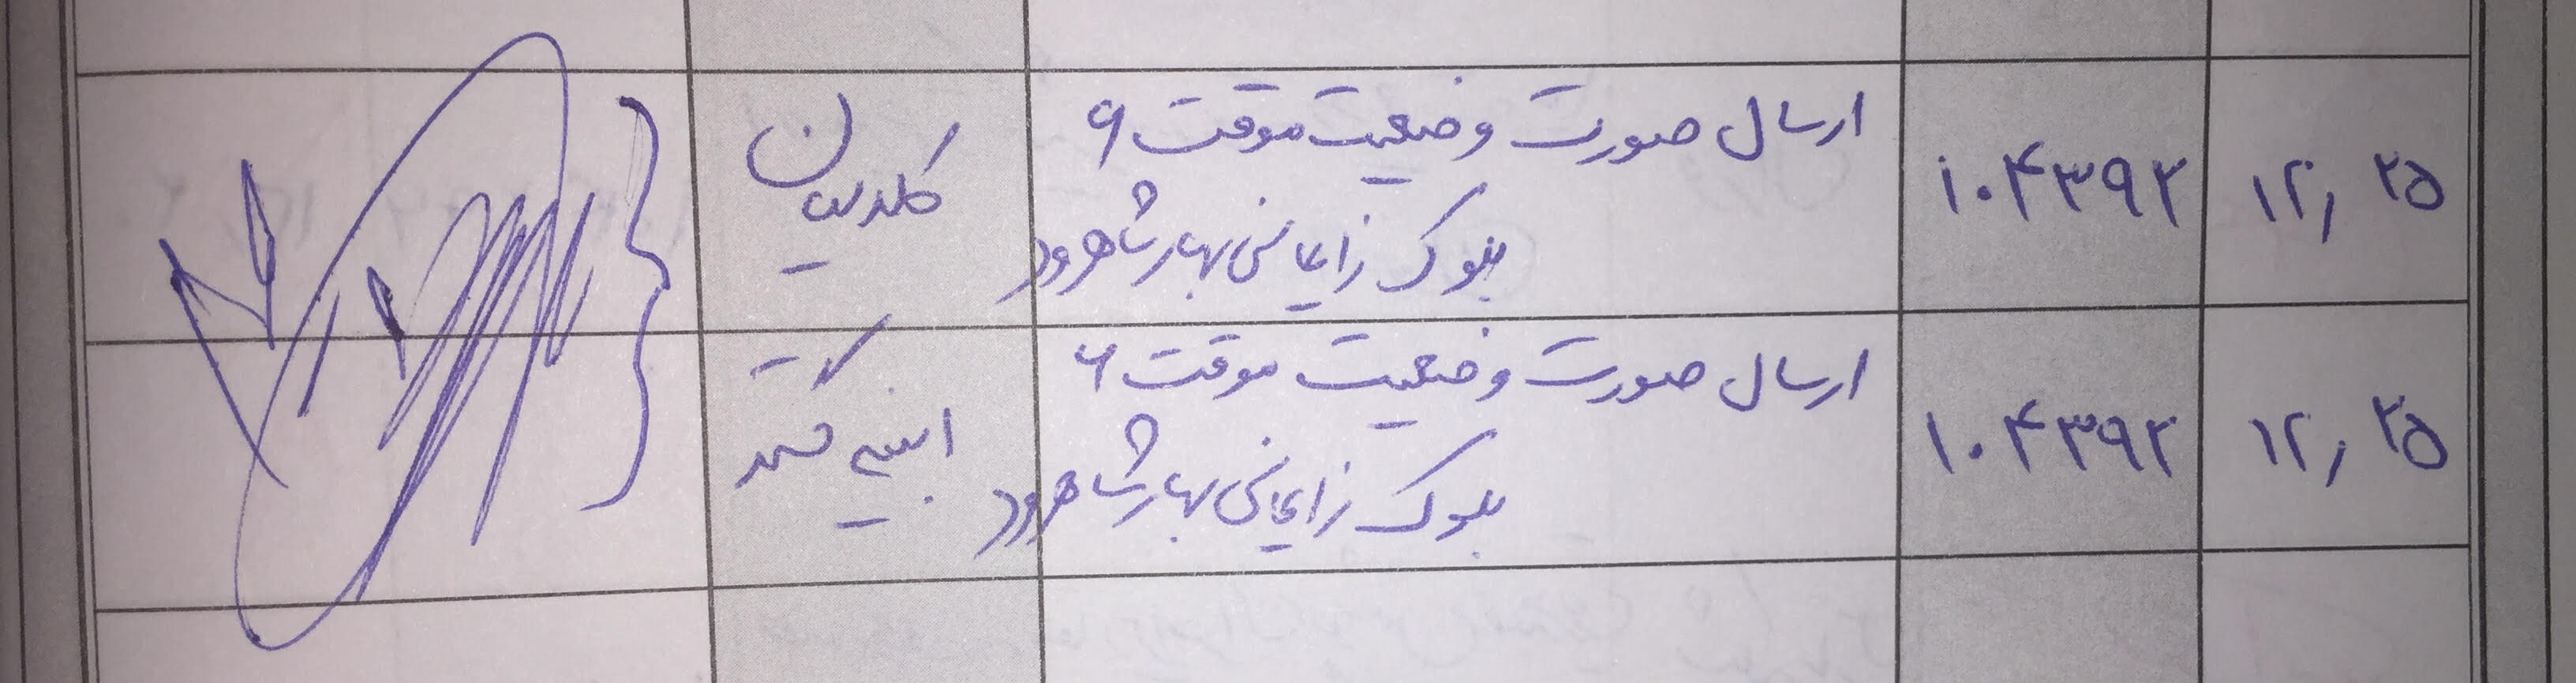 ۱۲٫۲۵
۱۰۴۳۹۲
ارسال صورت وضعیت موقت ۶
بلوک زایمانی بهار شاهرود
۱۲٫۲۵
۱۰۴۳۹۲
ارسال صورت وضعیت موقت ۶
بلوک زایمانی بهار شاهرود
ابنیه